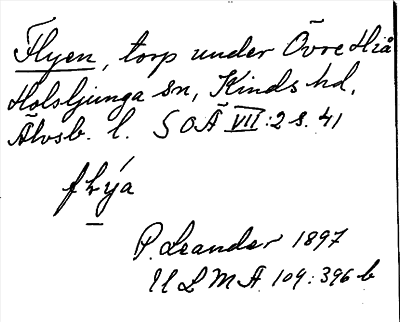 Flyen, torp under Övre Hiå
Holsljunga sn, Kinds hd,
Älvsb. l. SOÄ VII:2 s. 41
flýa
P. Leander 1897
ULMA. 109:396 b